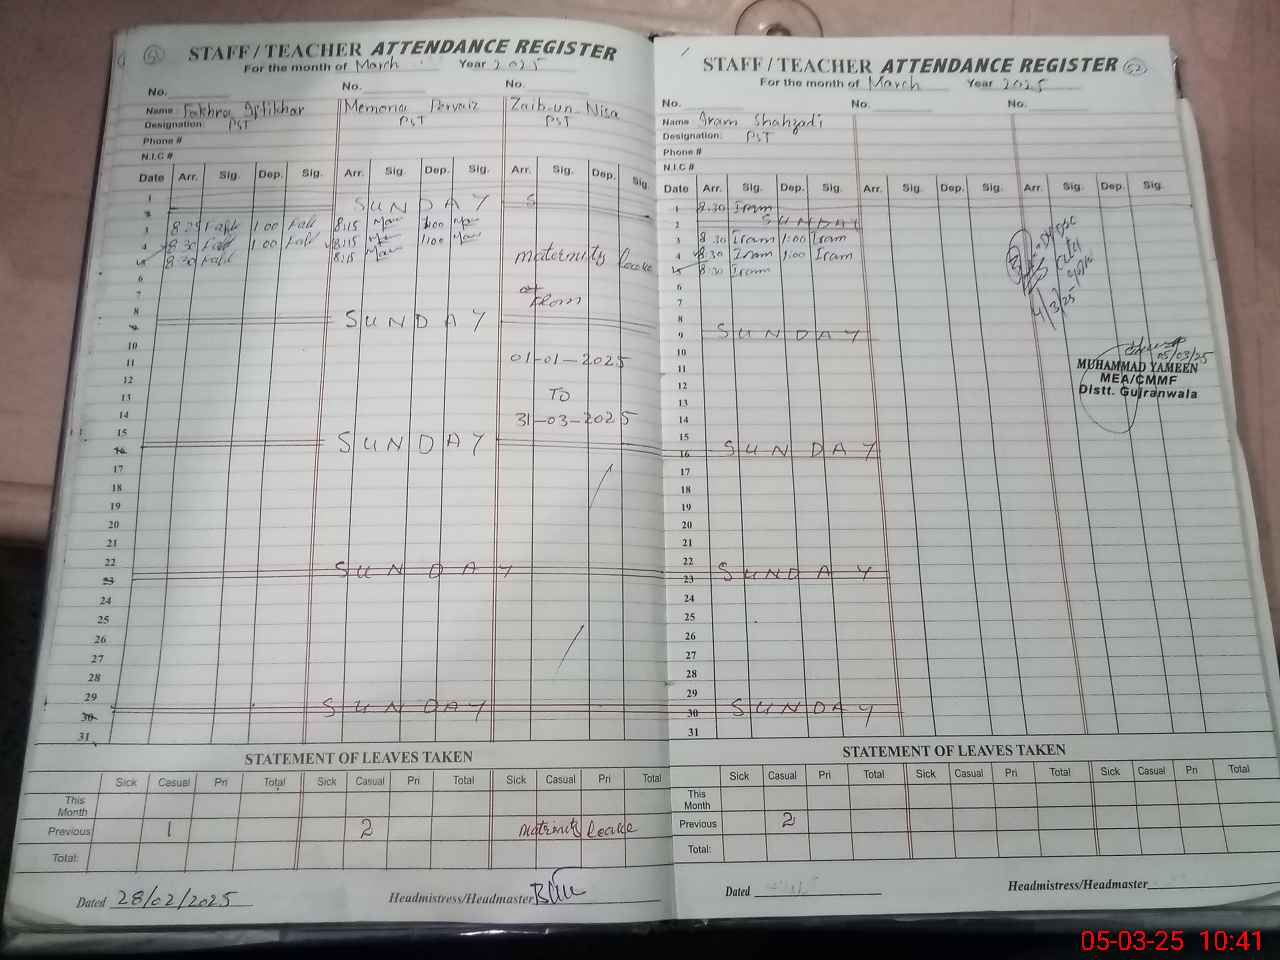 52
STAFF / TEACHER ATTENDANCE REGISTER
For the month of March Year 2025
No. No. No.
Name : Fakhra Iftikhar Memona Pervaiz Zaib-un-Nisa
Designation: PST PST PST
Phone #
N.I.C #
Date Arr. Sig. Dep. Sig. Arr. Sig. Dep. Sig. Arr. Sig. Dep. Sig.
1
2 SUNDAY S
3 8:25 1:00 8:15 1:00
4 8:30 1:00 8:15 1:00
5 8:30 8:15 maternity leave
6
7 From
8
9 SUNDAY
10
11 01-01-2025
12
13 TO
14 31-03-2025
15
16 SUNDAY
17
18
19
20
21
22
23 SUNDAY
24
25
26
27
28
29
30 SUNDAY
31
STATEMENT OF LEAVES TAKEN
Sick Casual Pri Total Sick Casual Pri Total Sick Casual Pri Total
This Month
Previous 1 2 Matrinity leave
Total:
Dated 28/02/2025 Headmistress/Headmaster
STAFF / TEACHER ATTENDANCE REGISTER 52
For the month of March Year 2025
No. No. No.
Name Iram Shahzadi
Designation: PST
Phone #
N.I.C #
Date Arr. Sig. Dep. Sig. Arr. Sig. Dep. Sig. Arr. Sig. Dep. Sig.
1 8:30 Iram
2 SUNDAY
3 8:30 Iram 1:00 Iram
4 8:30 Iram 1:00 Iram
5 8:30 Iram
6
7
8
9 SUNDAY
10
11
12
13
14
15
16 SUNDAY
17
18
19
20
21
22
23 SUNDAY
24
25
26
27
28
29
30 SUNDAY
31
4/3/25
05/03/25
MUHAMMAD YAMEEN
MEA/CMMF
Distt. Gujranwala
STATEMENT OF LEAVES TAKEN
Sick Casual Pri Total Sick Casual Pri Total Sick Casual Pri Total
This Month
Previous 2
Total:
Dated Headmistress/Headmaster
05-03-25 10:41